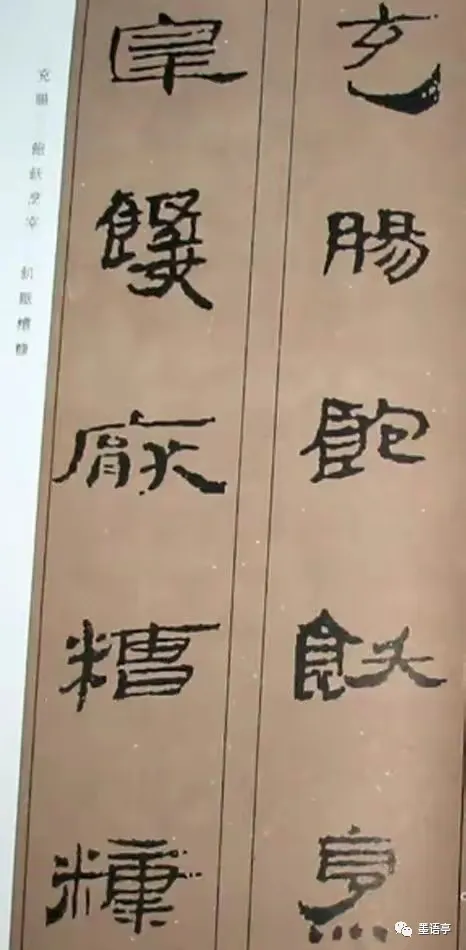 充腸飽飫烹
宰饑厭糟糠
充腸 飽飫烹宰 飢厭糟糠
墨语亭